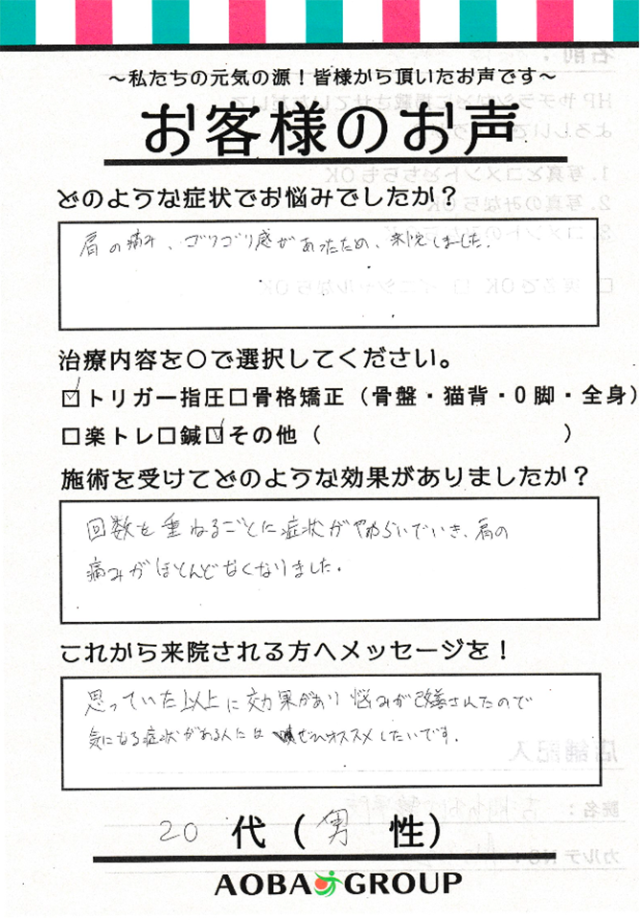 ～私たちの元気の源！皆様から頂いたお声です～
お客様のお声
どのような症状でお悩みでしたか？
肩の痛み、ゴリゴリ感があったため、来院しました。
治療内容を○で選択してください。
☑トリガー指圧□骨格矯正（骨盤・猫背・O脚・全身）
□楽トレ□鍼☑その他（　　　　　　　　　　）
施術を受けてどのような効果がありましたか？
回数を重ねるごとに症状がやわらいでいき、肩の
痛みがほとんどなくなりました。
これから来院される方へメッセージを！
思っていた以上に効果があり悩みが改善されたので
気になる症状がある人にはぜひオススメしたいです。
20 代（男 性）
AOBA GROUP